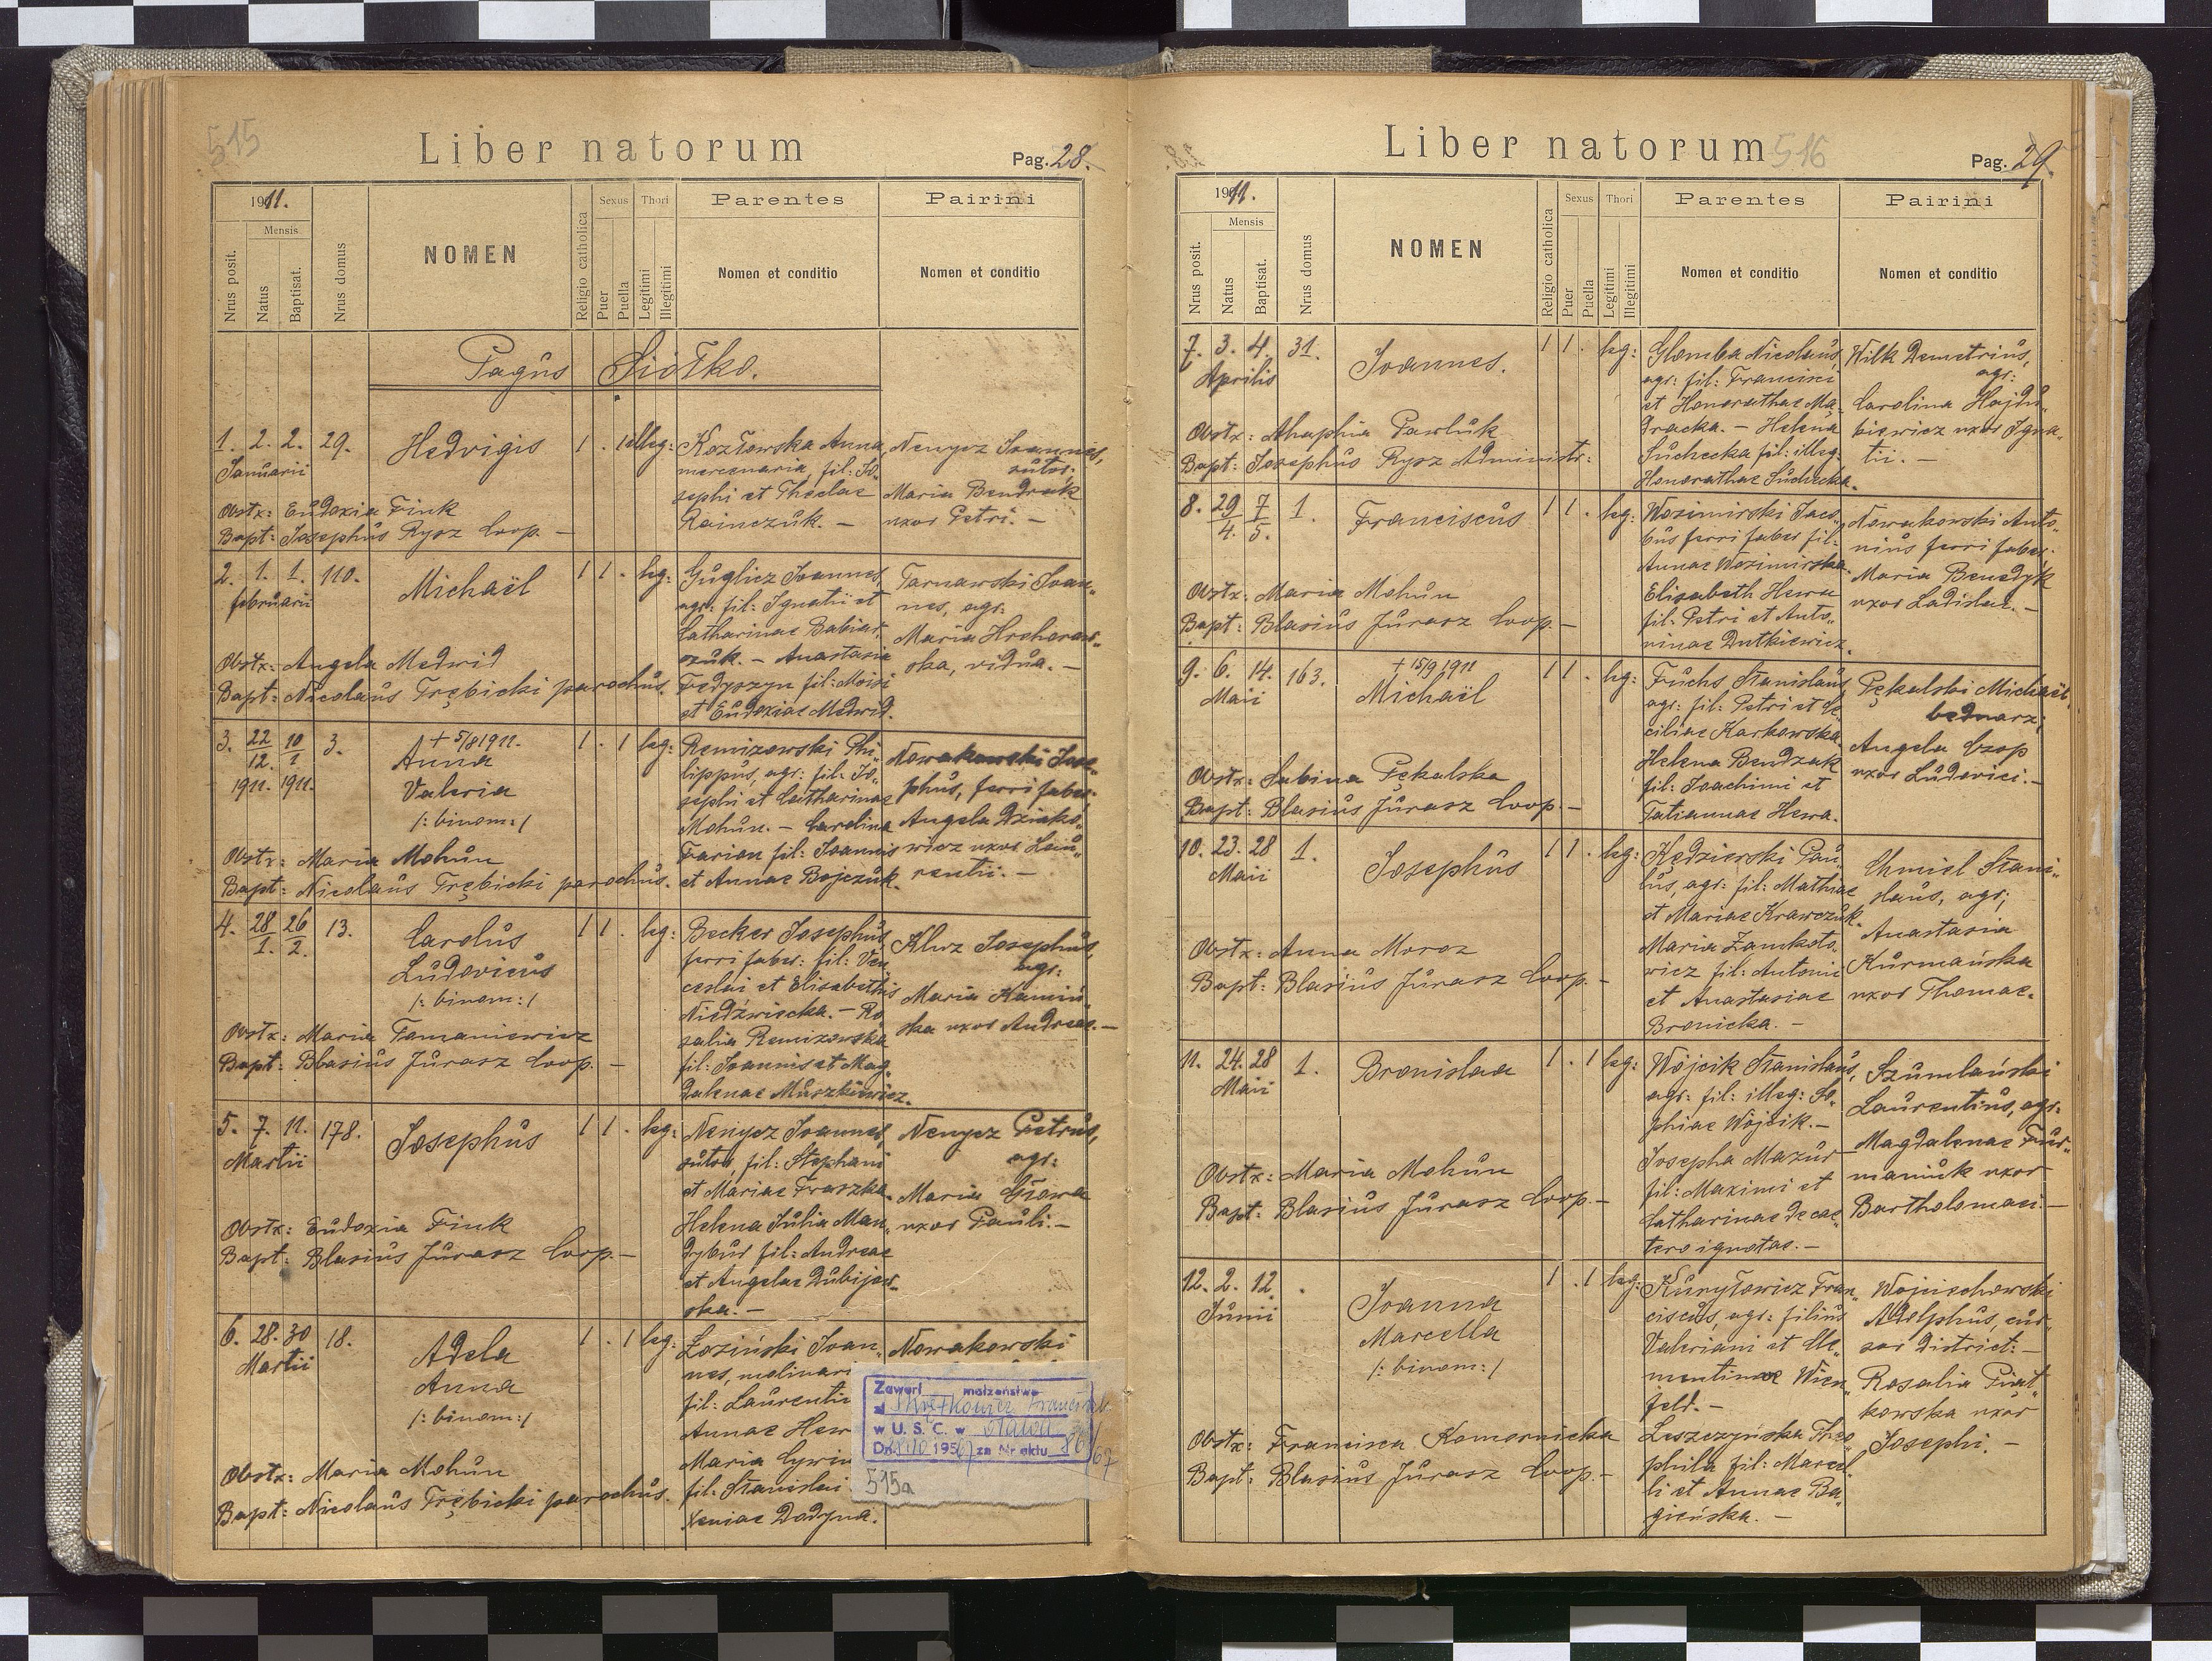 515
Liber natorum
Pag. 28.
1911.
Nrus posit.
Mensis
Natus
Baptisat.
Nrus domus
NOMEN
Religio catholica
Sexus
Puer
Puella
Thori
Legitimi
Illegitimi
Parentes
Nomen et conditio
Patrini
Nomen et conditio
Pagus Siółko.
1. 2. 2. 29.
Januarii
Hedvigis
1 . 1 illeg:
Kozłowska Anna,
mercenaria, fil: Jo-
sephi et Theclae
Rainczuk. –
Nenycz Joannes,
sutor.
Maria Bendrak
uxor Petri. –
Obstx: Eudoxia Fink
Bapt: Josephus Rysz Coop. –
2. 1. 1. 110.
februarii
Michaël
1 1 . leg:
Guglicz Joannes,
agr: fil: Ignatii et
Catharinae Babiar-
czuk. – Anastasia
Fedyszyn fil: Moisi
et Eudoxiae Medwid.
Tarnawski Joan-
nes, agr.
Maria Hrehorow-
ska, vidua. –
Obstx: Angela Medwid
Bapt: Nicolaus Trębicki parochus.
3. 22/12. 10/1 3.
1911. 1911.
+ 5/8 1911.
Anna
Valeria
/: binom:/
1 . 1 leg:
Remizowski Phi-
lippus, agr: fil: Jo-
sephi et Catharinae
Mohun. – Carolina
Farion fil: Joannis
et Annae Bojczuk.
Nowakowski Jose-
phus, ferri faber.
Angela Dziako-
wicz uxor Lau-
rentii. –
Obstx: Maria Mohun
Bapt: Nicolaus Trębicki parochus.
4. 28/1. 26/2. 13.
Carolus
Ludovicus
/: binom:/
1 1 . leg:
Becker Josephus
ferri faber: fil: Ven-
ceslai et Elisabethis
Niedźwiecka. – Ro-
salia Remizowska
fil: Joannis et Mag-
dalenae Muszkiewicz.
Klwz Josephus,
agr:
Maria Kamiń-
ska uxor Andreae. –
Obstx: Maria Tomaniewicz
Bapt: Blasius Jurasz Coop. –
5. 7. 11. 178.
Martii
Josephus
1 1 . leg:
Nenycz Joannes,
sutor, fil: Stephani
et Mariae Fraszka.
Helena Julia Man-
dybur fil: Andreae
et Angelae Dubijow-
ska. –
Nenycz Petrus,
agr:
Maria Głowa
uxor Pauli. –
Obstx: Eudoxia Fink
Bapt: Blasius Jurasz Coop. –
6. 28. 30 18.
Martii
Adela
Anna
/: binom:/
1 . 1 leg:
Łoziński Joan-
nes, molinari
fil: Laurentii
Annae Hew
Maria Cywin
fil: Stanislai
Xeniae Dodyna.
Nowakowski
Zawarł małżeństwo
w U. S. C. w Oława
Dn. 1967 za Nr aktu 86/67
515a
Obstx: Maria Mohun
Bapt: Nicolaus Trębicki parochus.
Liber natorum 516
Pag. 29.
1911.
Nrus posit.
Mensis
Natus
Baptisat.
Nrus domus
NOMEN
Religio catholica
Sexus
Puer
Puella
Thori
Legitimi
Illegitimi
Parentes
Nomen et conditio
Patrini
Nomen et conditio
7. 3. 4. 31.
Aprilis
Joannes.
1 1 . leg:
Glomba Nicolaus,
agr: fil: Francisci
et Honorathae Ma-
dracka. – Helena
Suchecka fil: illeg:
Honorathae Suchecka.
Wilk Demetrius,
agr:
Carolina Hajdu-
kiewicz uxor Igna-
tii. –
Obstx: Ahaphia Pawluk
Bapt: Josephus Rysz Administr:
8. 29/4. 7/5. 1.
Franciscus
1 1 . leg:
Wozimirski Jaco-
bus ferri faber fil:
Annae Wozimirska.
Elisabeth Hewa
fil: Petri et Anto-
ninae Dutkiewicz.
Nowakowski Anto-
nius ferri faber.
Maria Benedyk
uxor Ladislai. –
Obstx: Maria Mohun
Bapt: Blasius Jurasz Coop. –
9. 6. 14. 163.
Maii
+ 15/9 1911
Michaël
1 1 . leg:
Fuchs Stanislaus
agr: fil: Petri et Ce-
ciliae Karkowska
Helena Bendzak
fil: Joachimi et
Tatiannae Hewa.
Pękalski Michaël
bednarz,
Angela Czop
uxor Ludovici. –
Obstx: Sabina Pękalska
Bapt: Blasius Jurasz Coop. –
10. 23. 28 1.
Maii
Josephus
1 1 . leg:
Kędzierski Pau-
lus, agr: fil: Mathiae
et Mariae Krawczuk.
Maria Zamkoto-
wicz fil: Antonii
et Anastasiae
Bronicka. –
Chmiel Stani-
slaus, agr;
Anastasia
Kurmańska
uxor Thomae.
Obstx: Anna Moroz
Bapt: Blasius Jurasz Coop. –
11. 24. 28 1.
Maii
Bronislaa
1 . 1 leg:
Wójcik Stanislaus,
agr: fil: illeg: So-
phiae Wójcik. –
Josepha Mazur
fil: Maximi et
Catharinae de cae-
tero ignotae. –
Szumlański
Laurentius, agr.
Magdalenae Fur-
maniuk uxor
Bartholomaei. –
Obstx: Maria Mohun
Bapt: Blasius Jurasz Coop. –
12. 2. 12. .
Junii
Joanna
Marcella
/: binom:/
1 . 1 leg:
Kuryłowicz Fran-
ciscus, agr: filius
Valeriani et Cle-
mentinae Wien-
feld. –
Leszczyńska Theo-
phila fil: Marcel-
li et Annae Ba-
gieńska. –
Wojciechowski
Adolphus, cur-
sor district: –
Rosalia Piąt-
kowska uxor
Josephi. –
Obstx: Francisca Komornicka
Bapt: Blasius Jurasz Coop. –